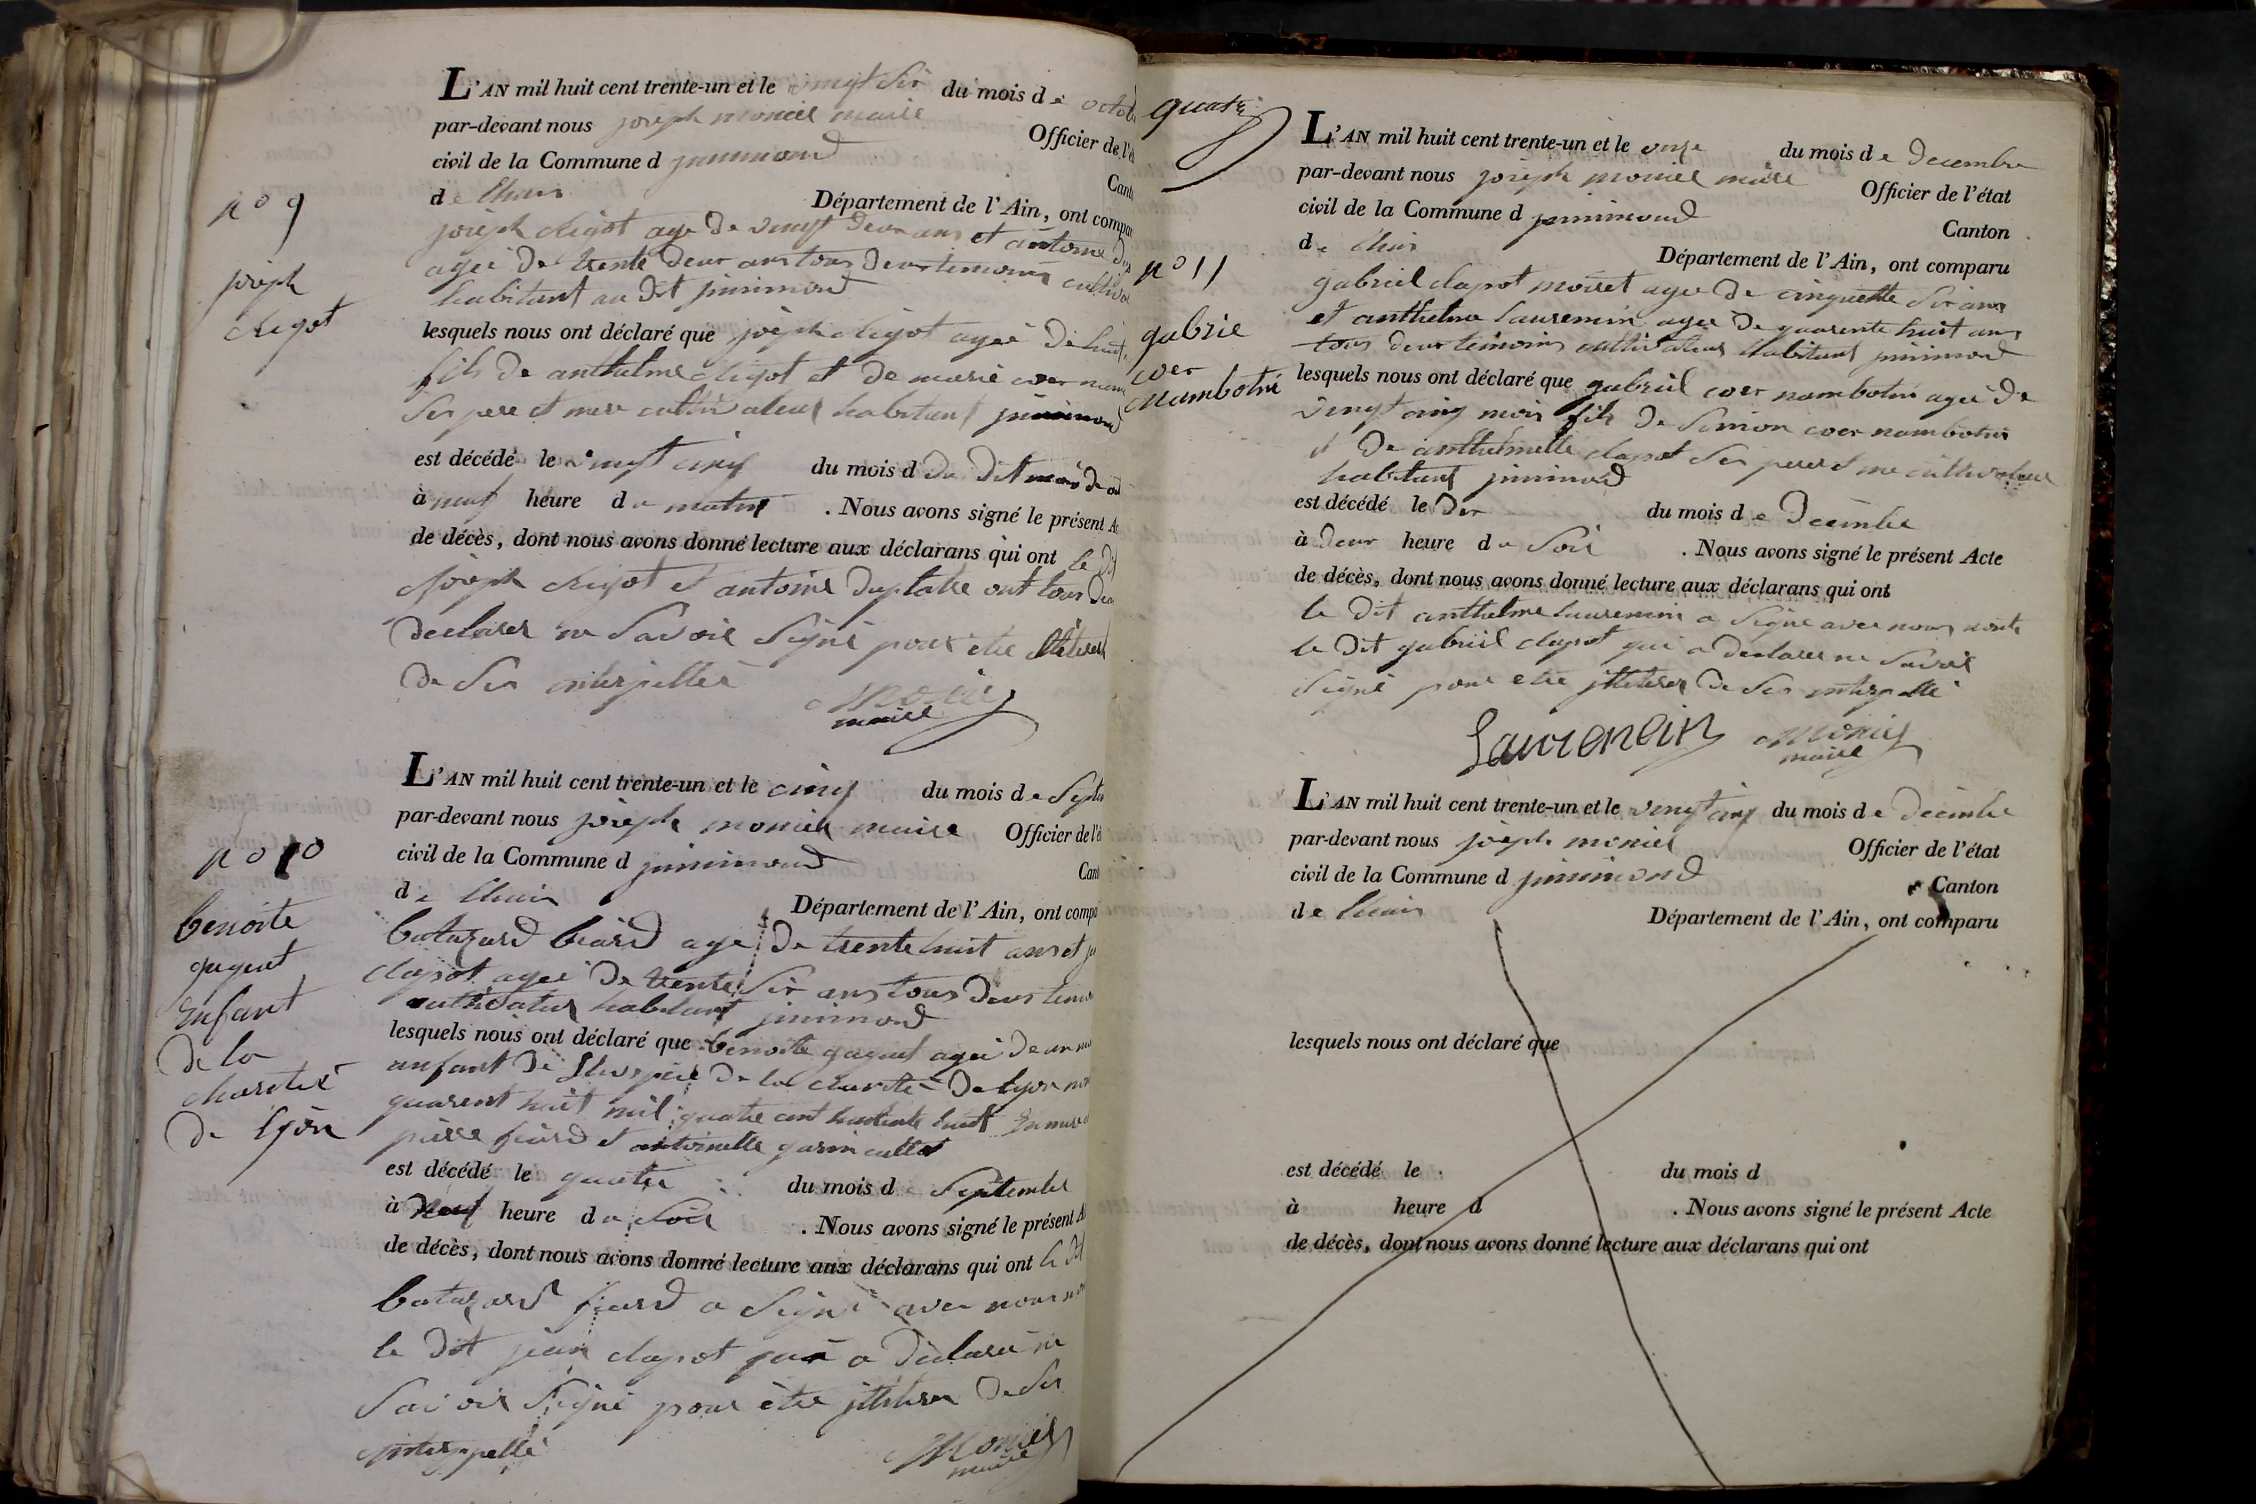 n° 9
joseph
chigot
L'AN mil huit cent trente-un et le vingt Six du mois de octob
par-devant nous joseph monier maire Officier de l'é
civil de la Commune d jnnimond Cant
de Lhuis Département de l'Ain, ont compar
joseph chigot age de vingt deux ans et antoine
agée de trente deux ans tous deux temoins cultiva
habitant au dit jnnimond
lesquels nous ont déclaré que joseph chigot agée de huit
fils de anthelme chigot et de marie coer nam
Ses pere et mere cultivateur habitant jnnimond
est décédé le vingt cinq du mois d du dit mois de oct
à neuf heure du matin . Nous avons signé le présent Ac
de décès, dont nous avons donné lecture aux déclarans qui ont le dit
joseph chigot et antoine ont tous deu
declarer ne Savoir Signé pour etre
de Ses interpellée
monier
maire
n° 10
benoite
gaguet
enfant
de la
charité
de lyon
L'AN mil huit cent trente-un et le cinq du mois de Septe
par-devant nous joseph monier maire Officier de l'é
civil de la Commune d jnnimond Cant
de Lhuis Département de l'Ain, ont compa
batazard fiard age de trente huit ans et j
clapot agée de trente Six ans tous deux temoi
cultivateur habitant jnnimond
lesquels nous ont déclaré que benoite gaguet agée de un
anfant de de la charité de lyon
quarent huit mil quatre cent huit
pierre fiard et antoinette garin cullet
est décédé le quatre du mois d Septembre
à neuf heure du Soir . Nous avons signé le présent A
de décès, dont nous avons donné lecture aux déclarans qui ont le dit
batazard fiard a Signé avec nous no
le dit jean clapot qui a déclaré ne
Savoir Signé pour être jlliterer de Ses
jnterppellé
Monier
maire
quatre
n° 11
gabrie
coer
nambotin
L'AN mil huit cent trente-un et le onze du mois de decembre
par-devant nous joseph monier maire Officier de l'état
civil de la Commune d jnnimond Canton
de Lhuis Département de l'Ain, ont comparu
gabriel clapot moiret agée de cinquente Six ans
et anthelme Laurencin agée de quarente huit ans
tous deux temoins cultivateur habitant jnnimond
lesquels nous ont déclaré que gabriel coer nambotin agée de
vingt cinq mois fils de Simion coer nambotin
et de anthelmette clapot Ses pere et me cultivateur
habitant jnnimond
est décédé le dix du mois de decembre
à deux heure du Soir . Nous avons signé le présent Acte
de décès, dont nous avons donné lecture aux déclarans qui ont
le dit anthelme Laurencin a Signé avec nous nonts
le dit gabriel clapot qui a declarer ne Savoir
Signé pour etre jlliterer de Ses interpellé
Laurencin monier
maire
L'AN mil huit cent trente-un et le vingt cinq du mois de decembre
par-devant nous joseph monier Officier de l'état
civil de la Commune d jnnimond Canton
de Lhuis Département de l'Ain, ont comparu
lesquels nous ont déclaré que
est décédé le du mois d
à heure d . Nous avons signé le présent Acte
de décès, dont nous avons donné lecture aux déclarans qui ont